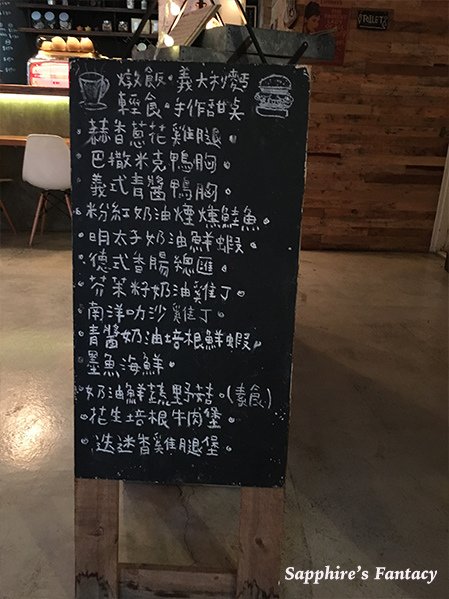 燉飯·義大利麵
輕食·手作甜桌
·蒜香蔥花雞腿·
·巴撒米克鴨胸·
·義式青醬鴨胸·
·粉紅奶油煙燻鮭魚·
·明太子奶油鮮蝦·
·德式香腸總匯·
·芥茉籽奶油雞丁·
·南洋叻沙雞丁·
·青醬奶油培根鮮蝦·
墨魚海鮮·
·奶油鮮蔬野菇·(素食)
·花生培根牛肉堡·
·迷迭香雞腿堡·
Sapphire's Fantacy